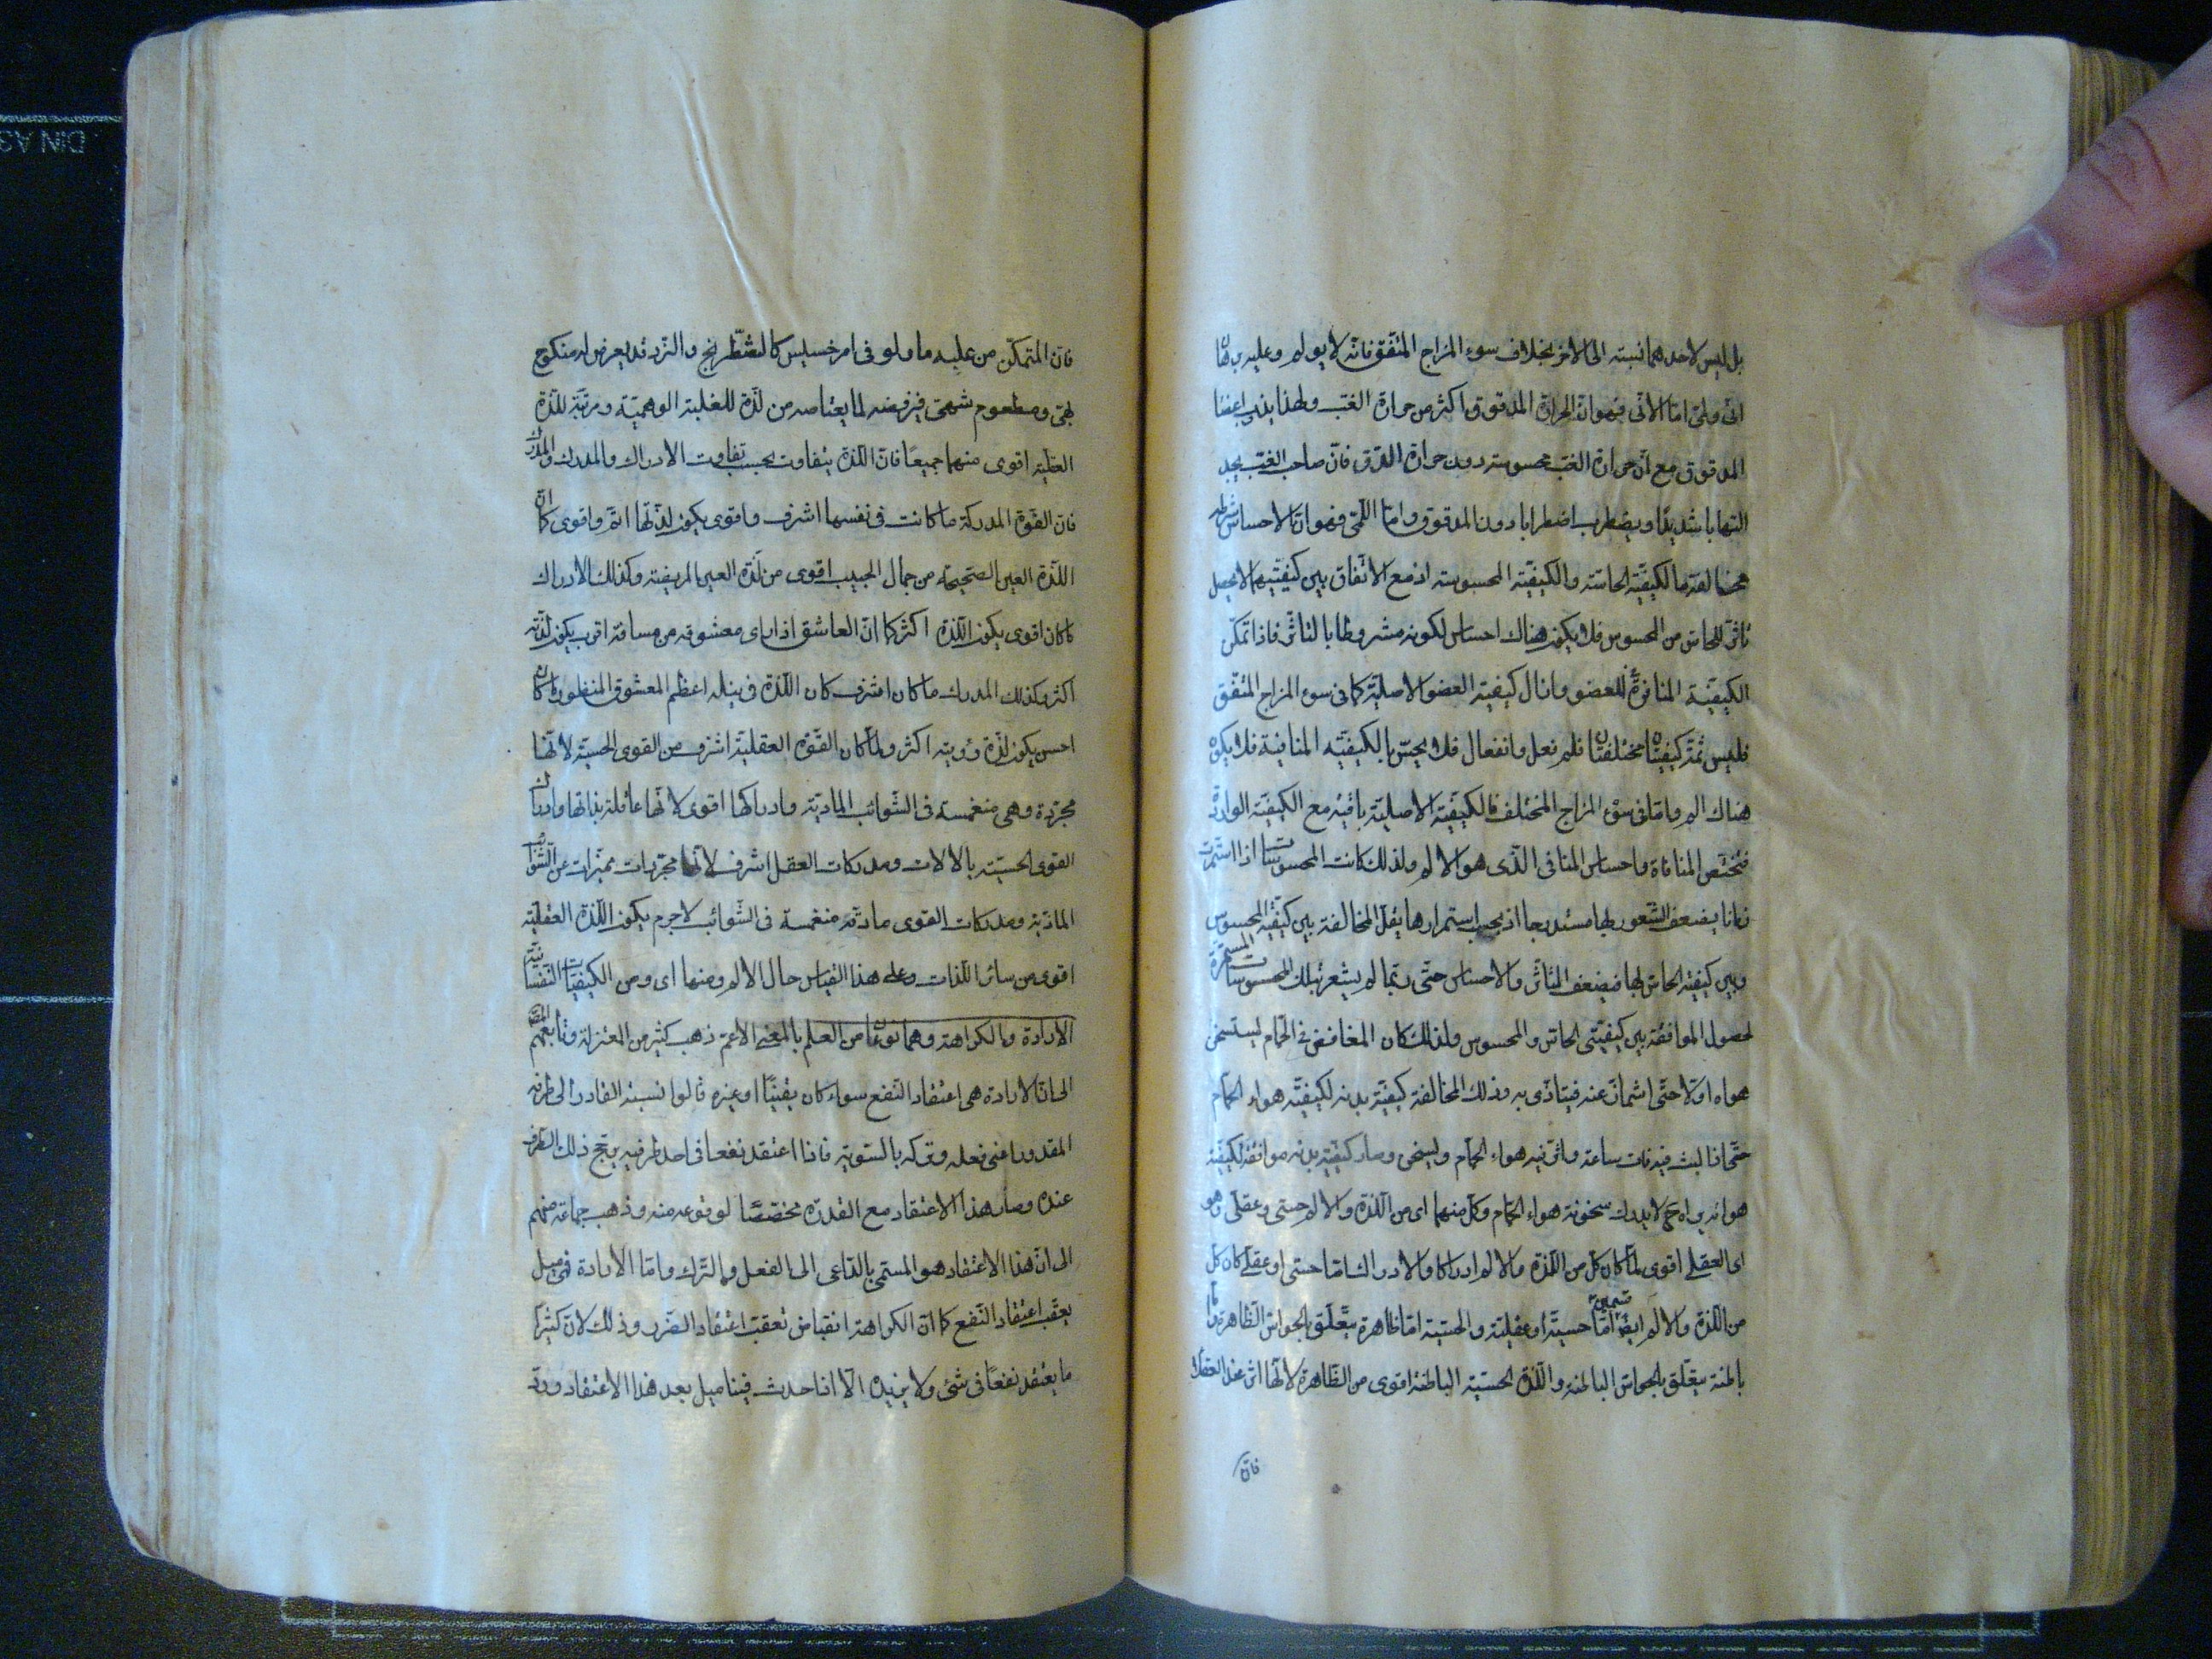 بل ليس لاحدهما نسبته الى الاخر بخلاف سوء المزاج المتفق فانه لا يولم وعليه برهان
انى ولمى اما الانى فهو ان الحرارة المدقوق اكثر من حرارة الغب ولهذا يذيب اعضا
المدقوق مع ان حرارة الغب محسوسته دون حرارة الدق فان صاحب الغب يجد
التهابا شديدا ويضطرب اضطرابا دون المدقوق واما اللمى فهو ان الاحساس شرطه
مخالفة ما لكيفية الحاسة والكيفية المحسوسته اذ مع الاتفاق بين كيفيتيهما لا يحصل
تاثر للحاس من المحسوس فلا يكون هناك احساس لكونه مشروطا بالتاثر فاذا تمكن
الكيفية المنافرة للعضو وازال كيفية العضو الاصلية كما فى سوء المزاج المتفق
فليس ثمة كيفيتان مختلفتان فلم فعل وانفعال فلا يحس بالكيفية المنافية فلا يكون
هناك الم واما فى سوء المزاج المختلف فالكيفية الاصلية باقية مع الكيفية الواردة
فتختص المنافاة واحساس المنافى الذى هو الالم ولذلك كانت المحسوسات اذا استمرت
زمانا يضعف الشعور بها متدرجا اذ بحسب استمرارها يقل المخالفة بين كيفية المحسوس
وبين كيفية الحاس لها فيضعف التاثر والاحساس حتى ربما لم يشعر بتلك المحسوسات المستمرة
لحصول الموافقة بين كيفيتى الحاس والمحسوس ولذلك كان المغافض فى الحمام ليستسخن
هواه اولا حتى اشمأز عنه فيتاذى به وذلك المخالفة كيفية بدنه لكيفية هواء الحمام
حتى اذا لبث فيه زمان ساعة واثر فيه هواء الحمام وليسخن وصار كيفية بدنه موافقة لكيفية
هوائه يراه ح لا يدرك سخونة هواء الحمام وكل منهما اى من اللذة والالم حسى وعقلى وهو
اى العقلى اقوى لما كان كل من اللذة والالم ادراكا والادراك اما حسى او عقلى كان كل
من اللذة والالم ايضا قسمين اما حسية او عقلية والحسية اما ظاهرة يتعلق بالحواس الظاهرة واما
باطنة يتعلق بالحواس الباطنة واللذة الحسية الباطنة اقوى من الظاهرة لانها اثر عند العقلاء
فان
فان المتمكن من غلبه ما ولو فى امر خسيس كالشطرنج والنرد قد يعرض له منكوح
بهى ومطعوم شهى فيرفضه لما يعتاضه من لذة للغلبة الوهمية ومرتبة للذة
العقلية اقوى منهما جميعا فان اللذة يتفاوت بحسب تفاوت الادراك والمدرك والمدرك
فان القوة المدركة ما كانت فى نفسها اشرف واقوى يكون لذتها اتم واقوى كما ان
اللذة العين الصحيحة من جمال الحبيب اقوى من لذة العين المريضة وكذلك الادراك
ما كان اقوى يكون اللذة اكثر كما ان العاشق اذا راى معشوقه من مسافة اقرب يكون لذته
اكثر وكذلك المدرك ما كان اشرف كان اللذة فى نيله اعظم المعشوق المنظور كلما كان
احسن يكون لذة رؤيته اكثر ولما كان القوة العقلية اشرف من القوى الحسية لانها
مجردة وهى منغمسة فى الشوائب المادية وادراكها اقوى لانها عاقلة بذاتها وادراك
القوى الحسية بالالات ومدركات العقل اشرف لانها مجردات مميزات عن الشوائب
المادية ومدركات القوى مادته منغمسة فى الشوائب لاجرم يكون اللذة العقلية
اقوى من سائر اللذات وعلى هذا القياس حال الالم ومنها اى ومن الكيفيات النفسانية
الارادة والكراهة وهما نوعان من العلم بالمعنى الاعم ذهب كثير من المعتزلة وتابعهم المص
الى ان الارادة هى اعتقاد النفع سواء كان يقينيا او غيره قالوا نسبة القادر الى طرفى
المقدور اعنى فعله وتركه بالسوية فاذا اعتقد نفعا فى احد طرفيه يرجح ذلك الطرف
عنده وصار هذا الاعتقاد مع القدرة مخصصا لوقوعه منه وذهب جماعة منهم
الى ان هذا الاعتقاد هو المسمى بالداعى الى الفعل والترك واما الارادة فهى ميل
يعقب اعتقاد النفع كما ان الكراهة انقباض تعقب اعتقاد الضرر وذلك لان كثيرا
ما يعتقد نفعا فى شئ ولا يريده الا اذا حدث فينا ميل بعد هذا الاعتقاد ورد